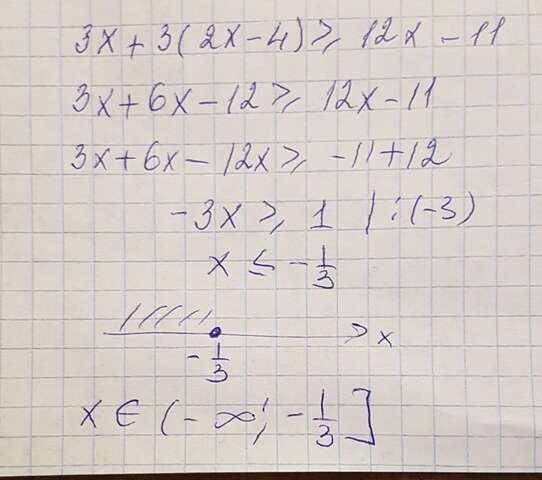 3x + 3(2x - 4) ⩾ 12x - 11
3x + 6x - 12 ⩾ 12x - 11
3x + 6x - 12x ⩾ -11 + 12
-3x ⩾ 1 | : (-3)
x ≤ -1/3
x
-1/3
x ∈ (-∞; -1/3]